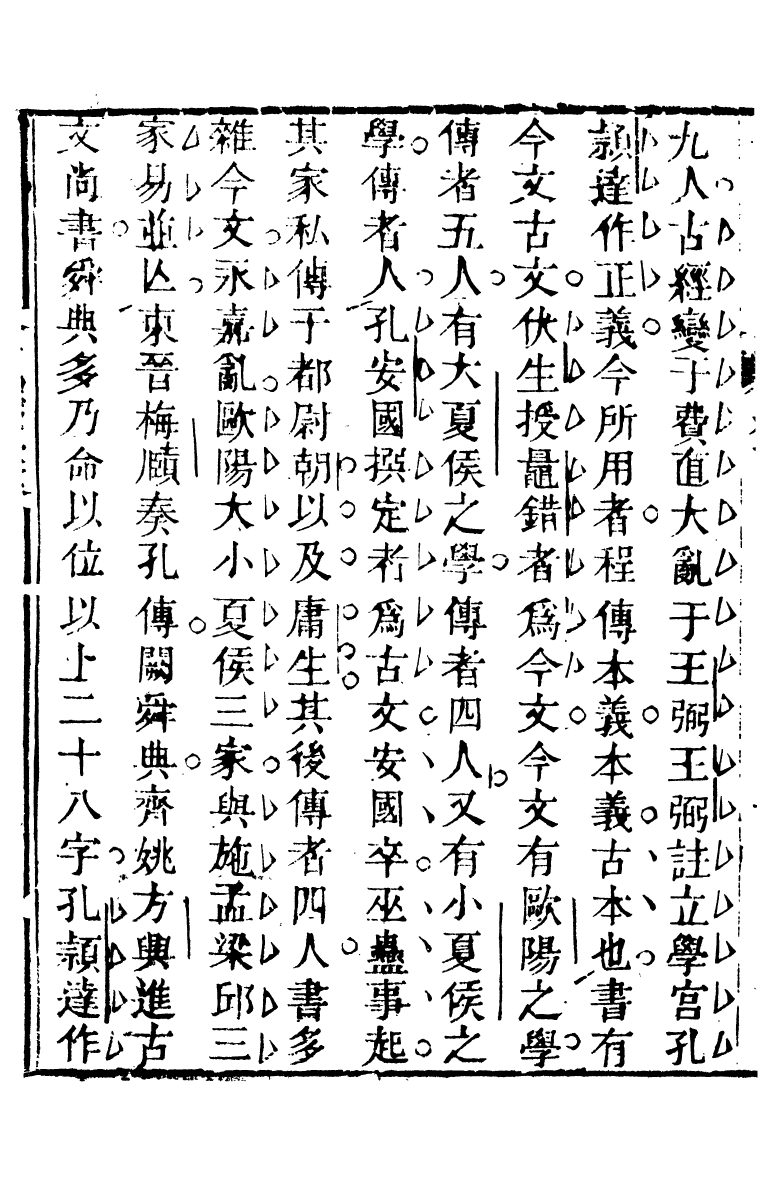 九人古經變于費直大亂于王弼王弼註立學宫孔
頴達作正義今所用者程傳本義本義古本也書有
今文古文伏生授鼂錯者爲今文今文有歐陽之學
傳者五人有大夏侯之學傳者四人又有小夏侯之
學傳者人孔安國撰定者爲古文安國卒巫蠱事起
其家私傳于都尉朝以及庸生其後傳者四人書多
雜今文永嘉亂歐陽大小夏侯三家與施孟梁邱三
家易並亾東晉梅賾奏孔傳闕舜典齊姚方興進古
文尚書舜典多乃命以位以上二十八字孔頴達作